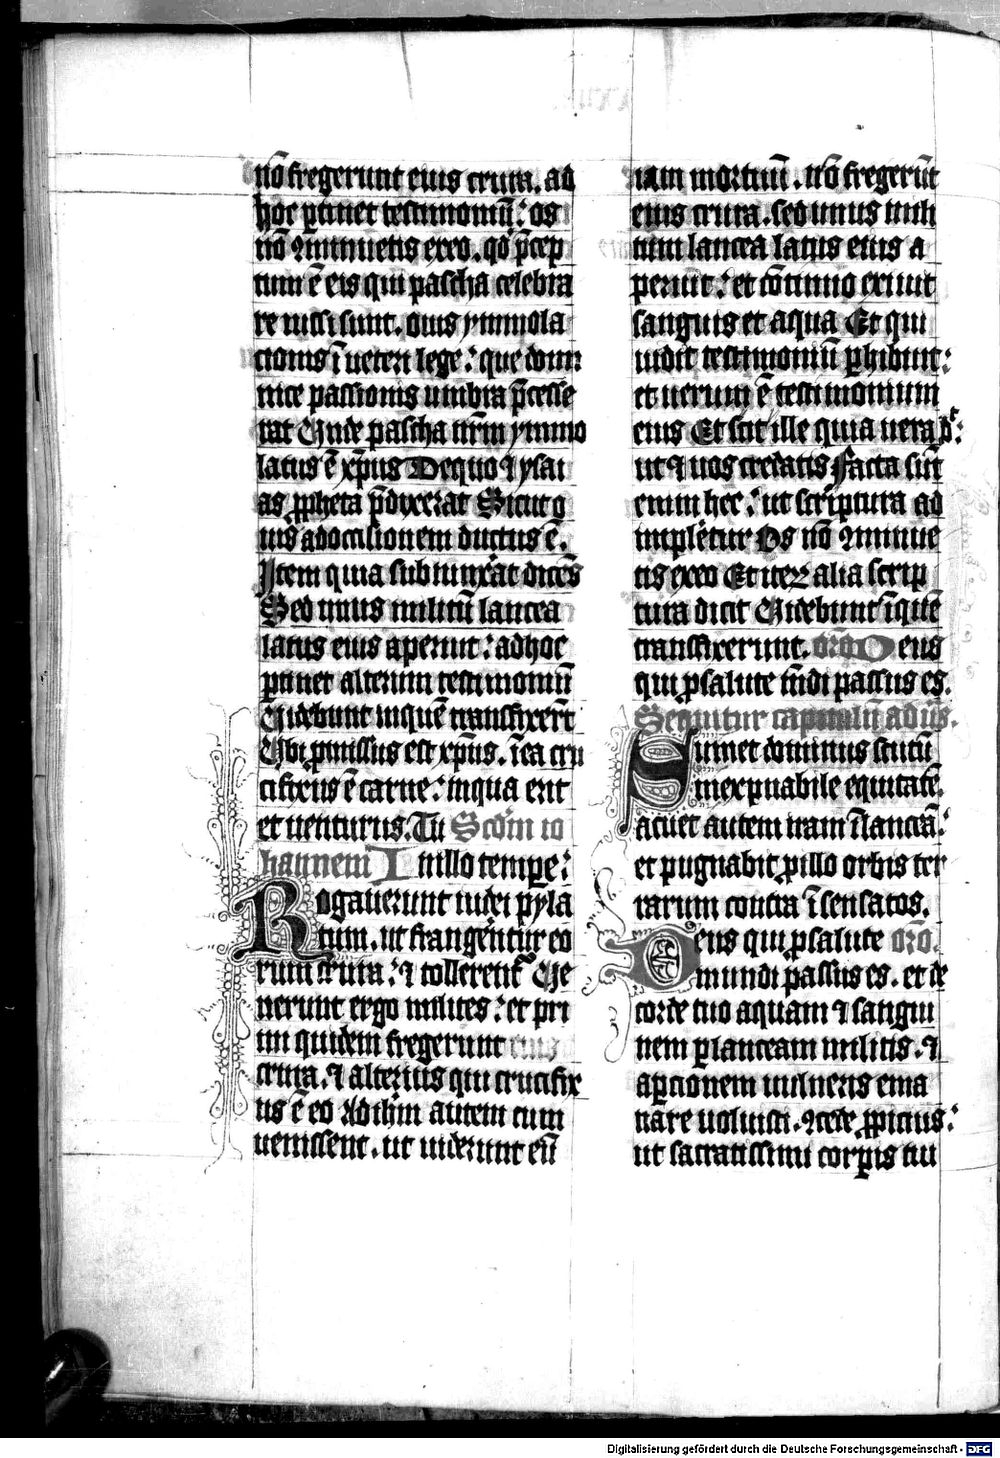 nō fregerunt eius crura. ad
hoc ꝑtinet testimoniū: os
nō ꝯminuetis exeo. qď p̄cep
tum ē eis qui pascha celebra
re iussi sunt. ouis ymmola
cionis ī ueteri lege: que domi
nice passionis umbra p̄cesse
rat Unde pascha nr̄m ymmo
latus ē xp̄us De quo ⁊ ysai
as ꝓpheta p̄dixerat Sicut o
uis ad occisionem ductus ē.
Item quia subiunxᷓat dicēs
Sed unus militū lancea
latus eius aperuit: ad hoc
ꝑtinet alterum testimoniū
Uidebunt in quē transfixerūt
Ubi ꝓmissus est xp̄us. ī ea cru
cifixus ē carne: in qua erit
et uenturus. Tu Scďm io
hannem In illo tempe:
Rogauerunt iudei pyla
tum. ut frangēntur eo
rum crura: ⁊ tollerent᷑ Ue
nerunt ergo milites: et pri
mi quidem fregerunt eius
crura. ⁊ alterius qui crucifix
us ē eo Ad ihm̄ autem cum
uenissent. ut uiderunt eū
iam mortuū. nō fregerūt
eius crura. sed unus mili
tum lancea latus eius a
peruit: et cōtinuo exiuit
sanguis et aqua Et qui
uidit testimoniū ꝑhibuit:
et uerum ē testimonium
eius Et scit ille quia uera d̄t:
ut ⁊ uos credatis Facta sūt
enim hec: ut scriptura ad
impletur Os nō ꝯminue
tis exeo Et iteꝝ alia scrip
tura dicit Uidebunt ī quē
transfixerunt. orō Deus
qui ꝓ salute mūdi passus es.
Sequitur capitulū ad ..
Sumet dominus scutū
inexpnabile equitatē.
acuet autem iram ī lanceā:
et pugnabit ꝓ illo orbis ter
rarum contra īsensatos.
Deus qui ꝓ salute orō.
mundi passus es. et de
corde tuo aquam ⁊ sangui
nem ꝑ lanceam militis. ⁊
aꝑcionem uulneris ema
nare uoluisti. ꝯcede ꝓpicius:
ut sacratissimi corꝑis tui
Digitalisierung gefördert durch die Deutsche Forschungsgemeinschaft - DFG